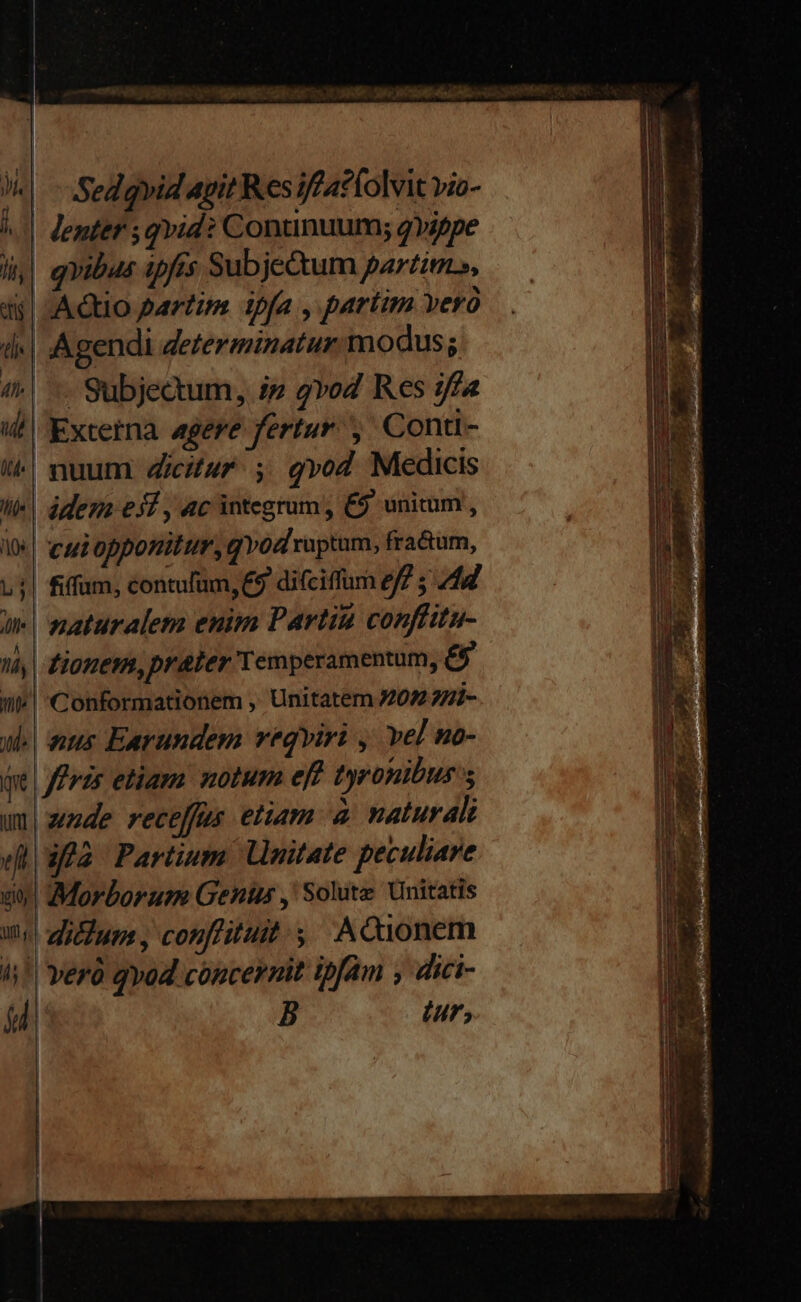 Sed qvid agit Res iſta? ſolvit vio-
lenter; qvid? Continuum; qvippe
qvibus ipſis Subjectum partim,
Actio partim ipſa, partim verò
Agendi determinatur modus;
Subjectum, in qvod Res iſta
Externa agere fertur, Conti-
nuum dicitur; qvod Medicis
idem est, ac integrum, & unitum,
cui opponitur, qvod ruptum, fractum,
fiſſum, contuſum, & diſciſſum eſt; Ad
naturalem enim Partiū conſtitu-
tionem, præter Temperamentum, &
Conformationem, Unitatem non mi-
nus Earundem reqviri, vel no-
ſtris etiam notum eſt tyronibus;
unde receſſus etiam à naturali
iſtâ Partium Unitate peculiare
Morborum Genus, Solutæ Unitatis
dictum, conſtituit; Actionem
verò qvod concernit ipſam, dici-
B tur,